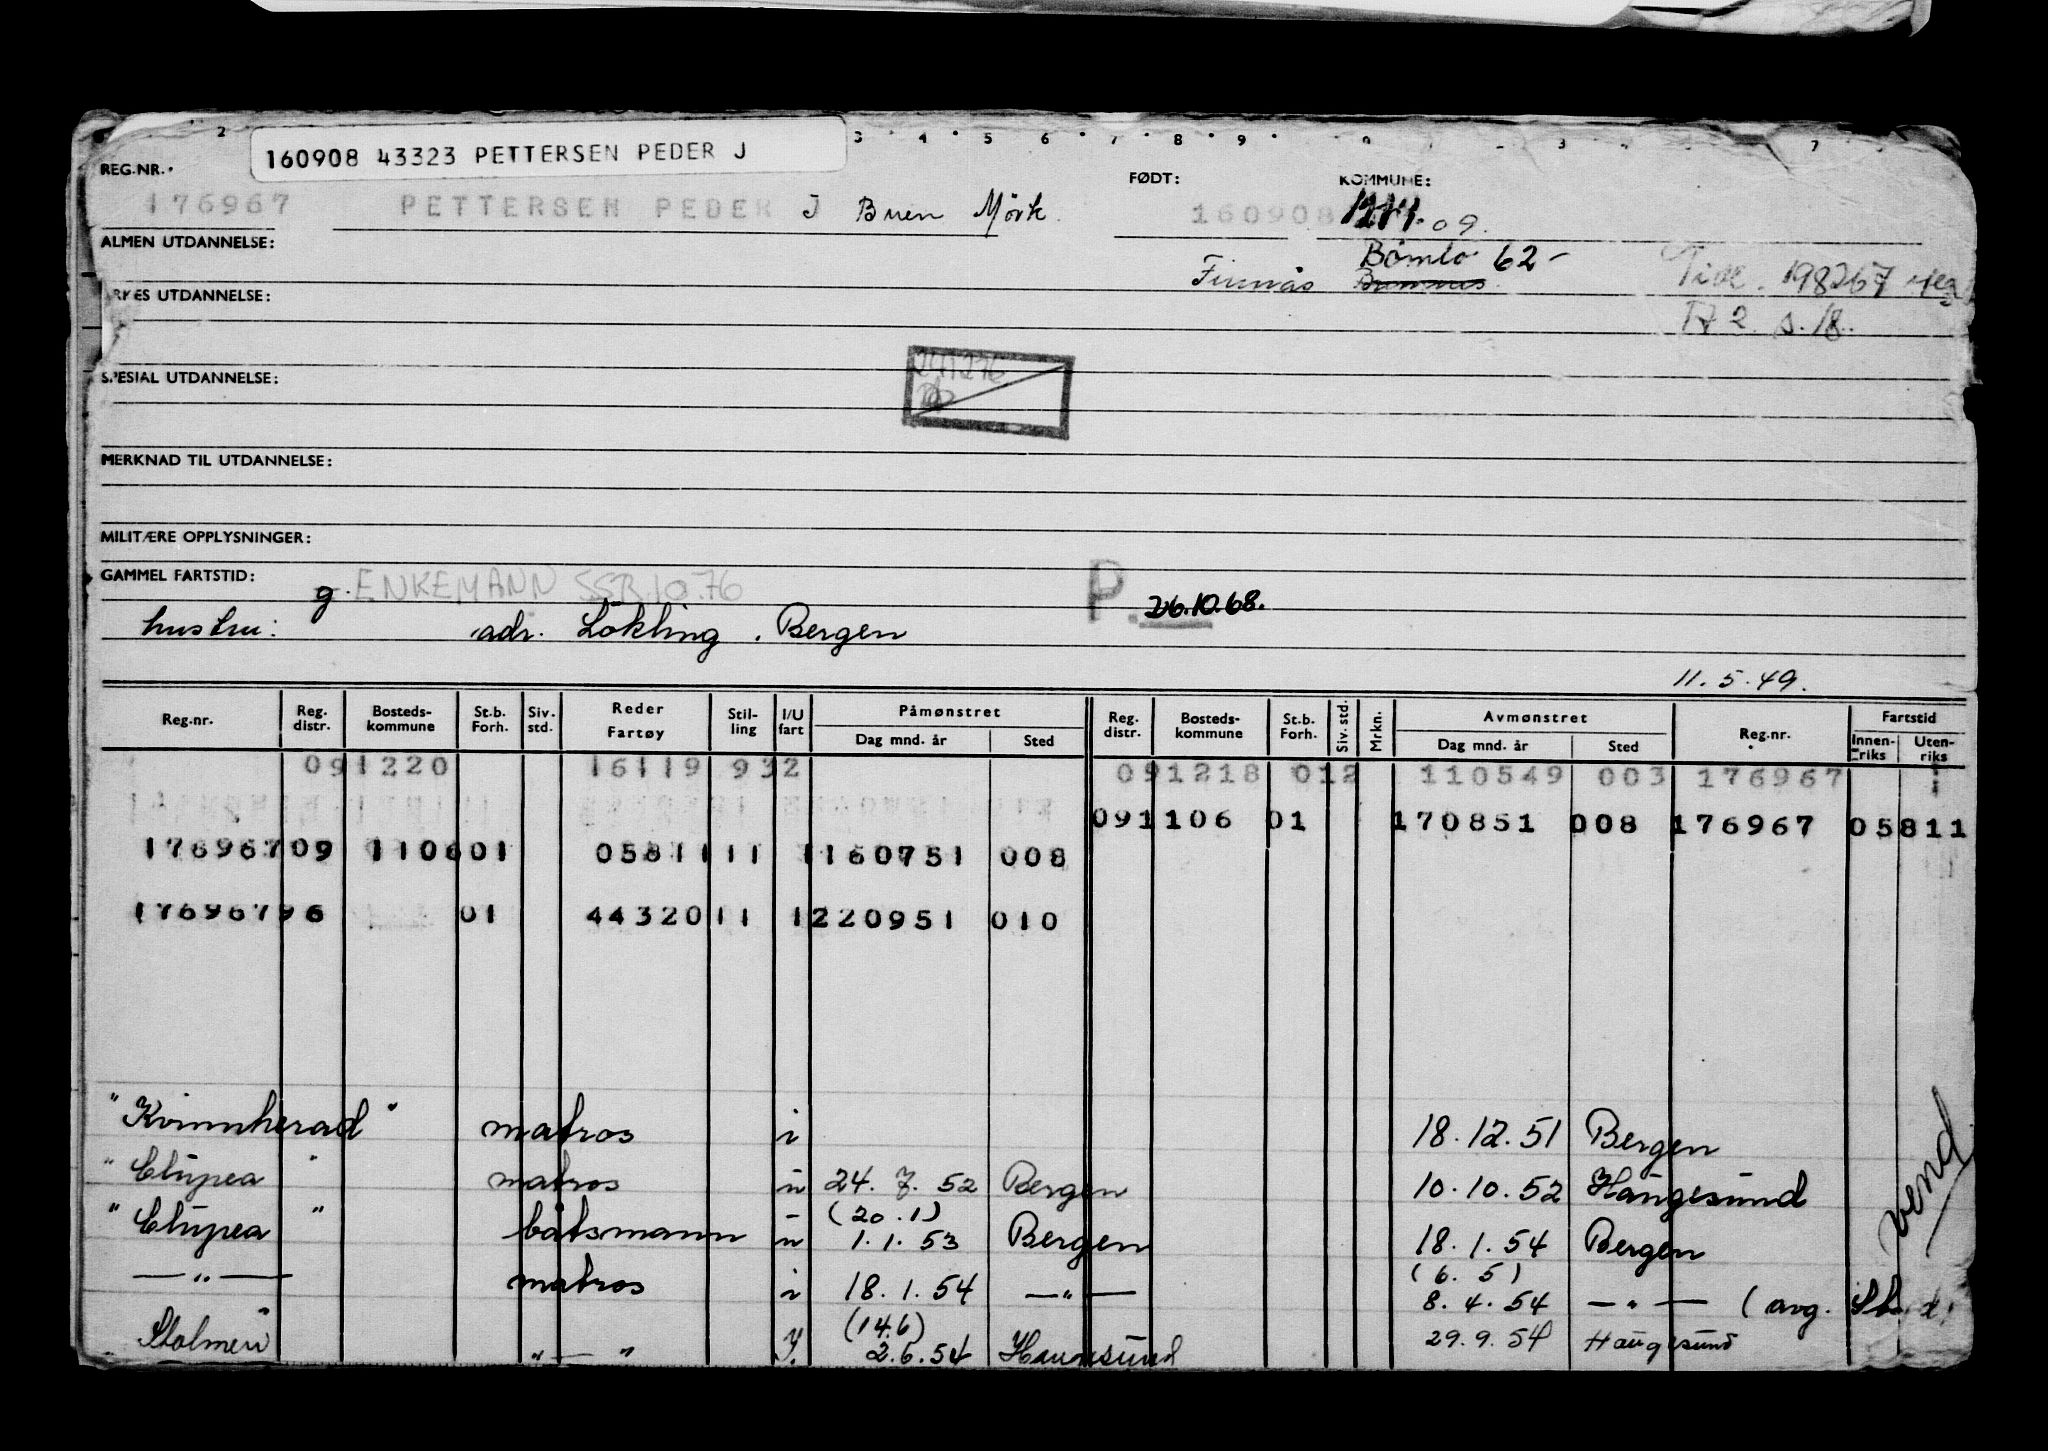 160908 43323 PETTERSEN PEDER J
REG.NR.
FØDT:
KOMMUNE:
176967 PETTERSEN PEDER J Buen Mörk 160908
09.
ALMEN UTDANNELSE:
Bömlo 62-
Finnås
YRKES UTDANNELSE:
198267
s. 18.
SPESIAL UTDANNELSE:
MERKNAD TIL UTDANNELSE:
MILITÆRE OPPLYSNINGER:
GAMMEL FARTSTID:
g. ENKEMANN SSB.10.76 P. 26.10.68.
hustru: adr. Lökling, Bergen
11.5.49.
Reg.nr. Reg. distr. Bosteds-kommune St.b. Forh. Siv. std. Reder Fartøy Stil-ling I/U fart Påmønstret Dag mnd. år Sted Reg. distr. Bosteds-kommune St.b. Forh. Siv. std. Mrkn. Avmønstret Dag mnd. år Sted Reg.nr. Fartstid Innen-riks Uten-riks
091220 16119 932 091218 012 110549 003 176967
091106 01 170851 008 176967 05811
17696709 110601 05811 11 1160751 008
17696796 01 44320 11 1220951 010
"Kvinnherad" matros i 18.12.51 Bergen
"Clupea" matros u 24.7.52 Bergen 10.10.52 Haugesund
"Clupea" båtsmann u (20.1) 1.1.53 Bergen 18.1.54 Bergen
—"— matros i 18.1.54 —"— (6.5) 8.4.54 —"— (avg.
Stolmen "—" (14.6) 2.6.54 Haugesund 29.9.54 Haugesund
vend